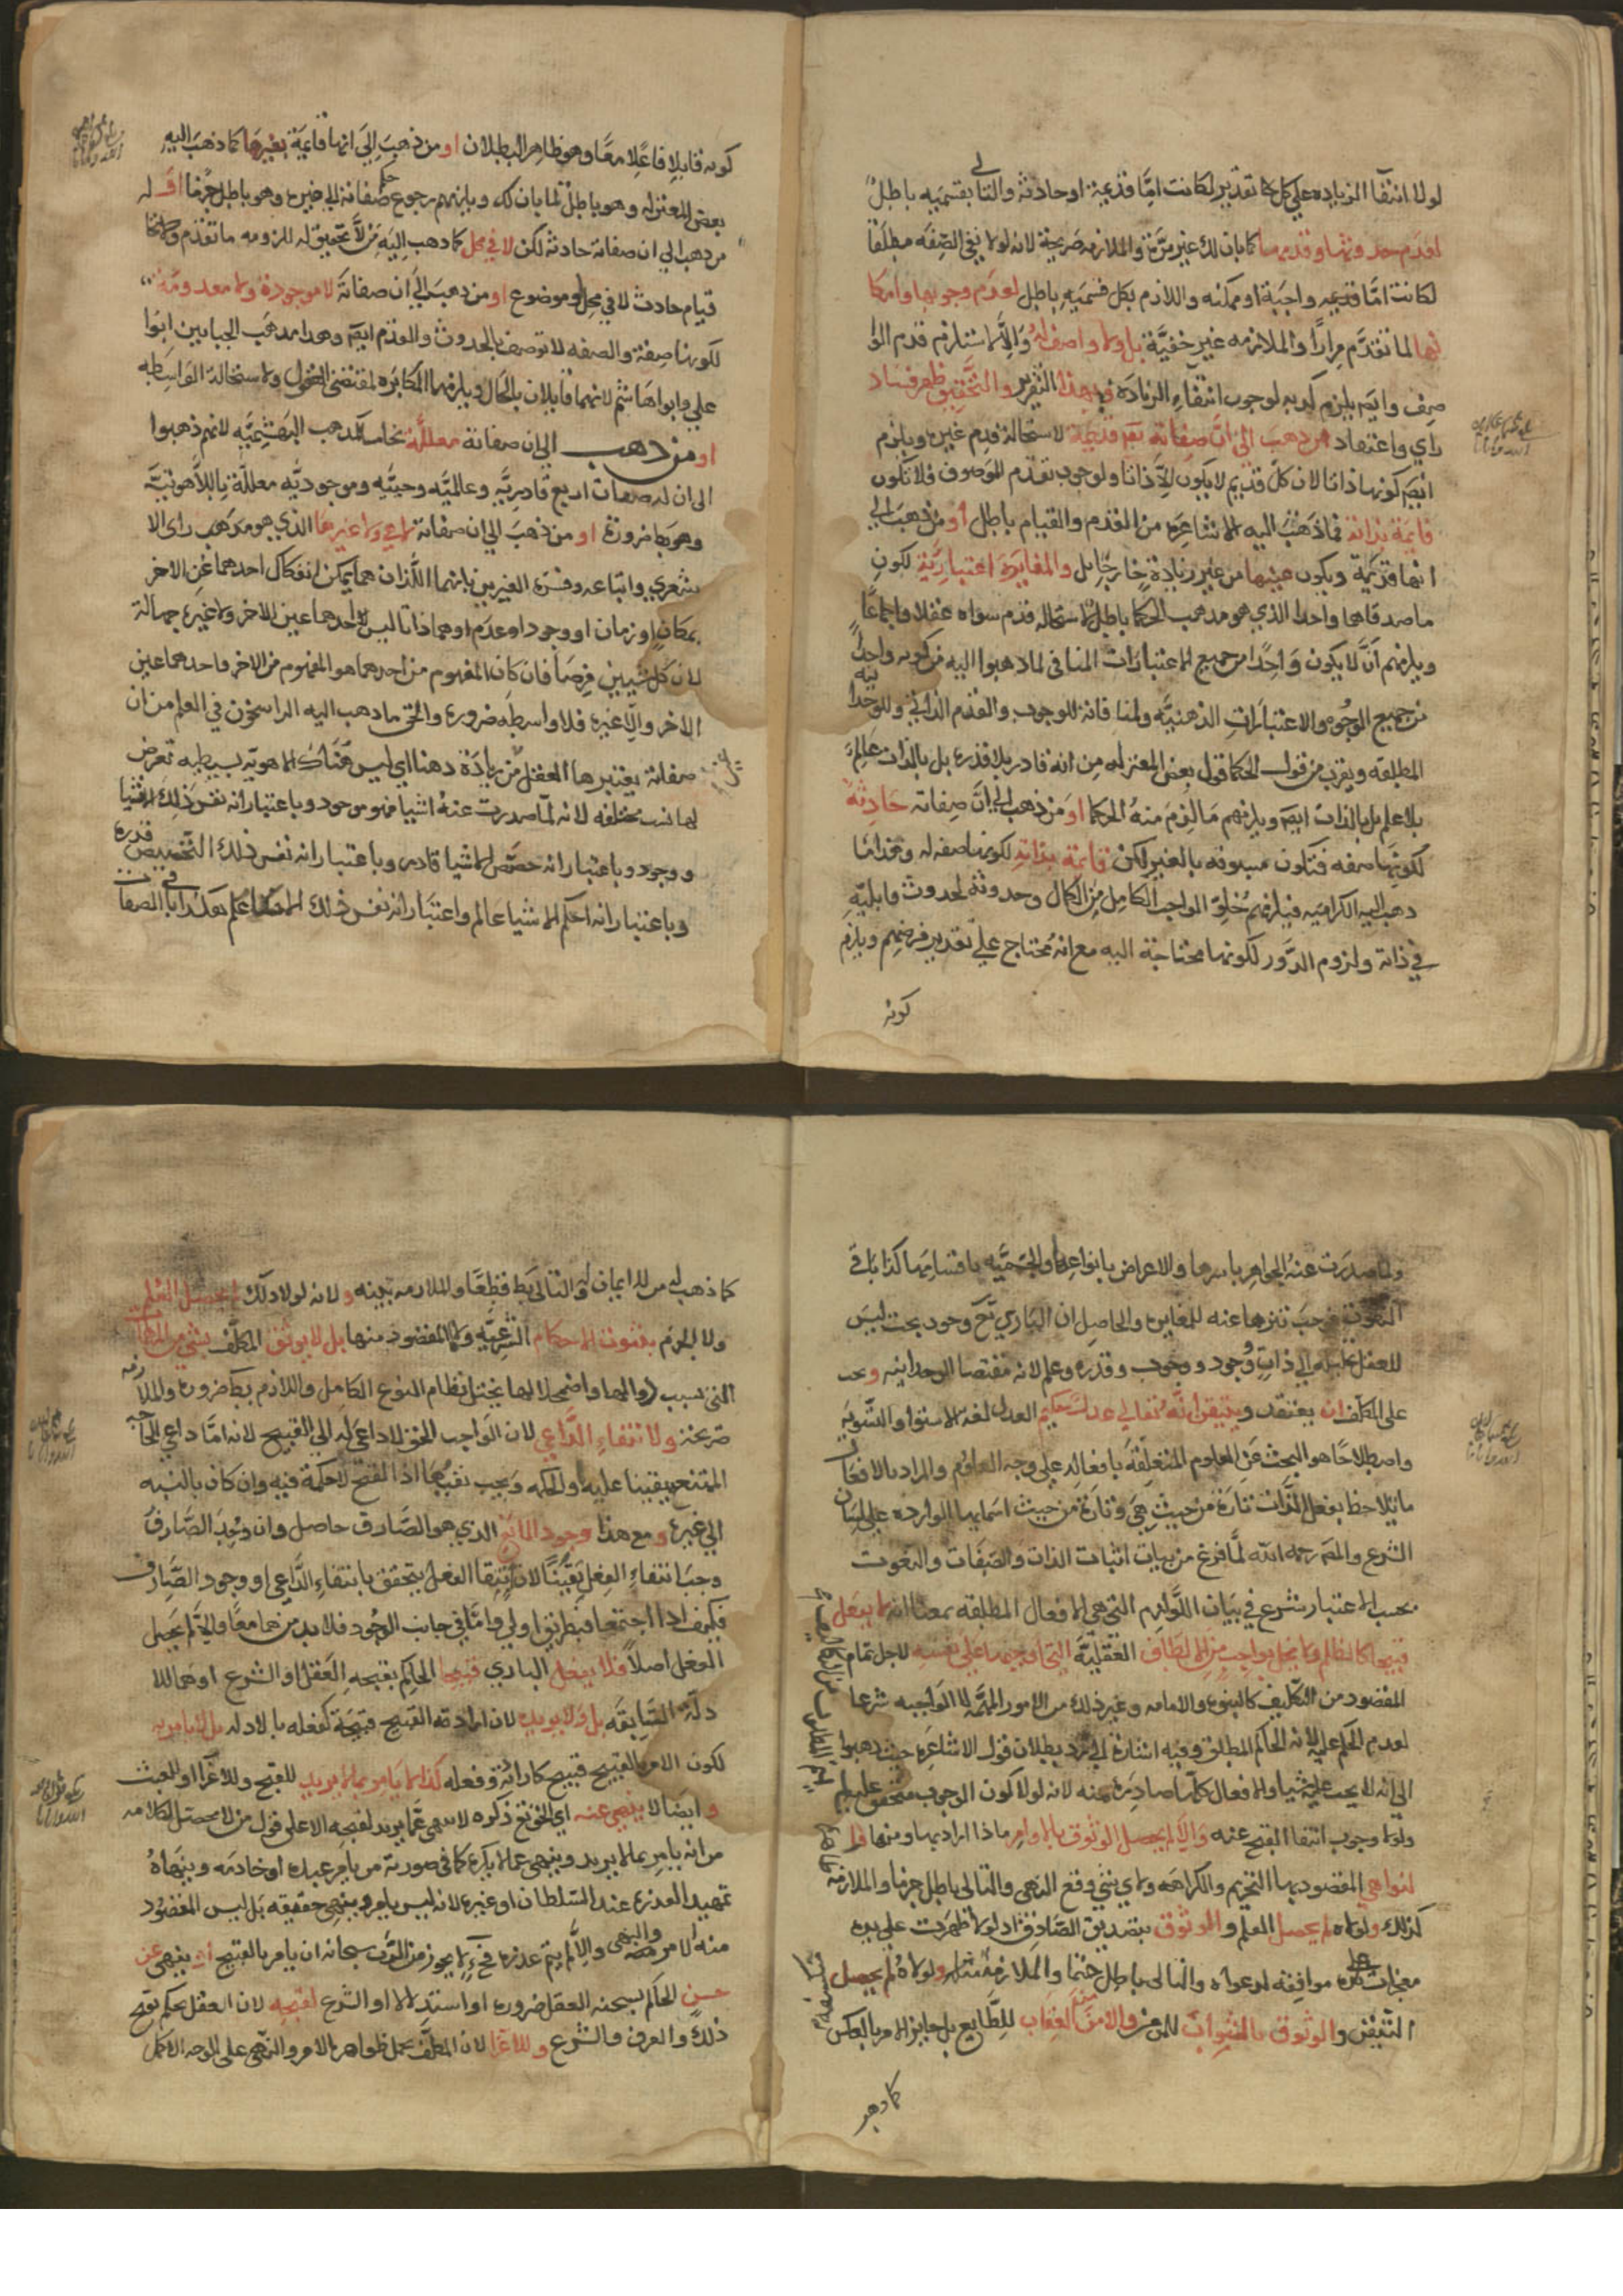 لولا انتفآ الزياده علي كل تقدير لكانت امّا قديمة او حادثة والتالي بقسميه باطل
لعدم حدوثها وقدمها كما بان لك غير مرّة والملازمه صريحة لانه لولا نفي الصّفه مطلقا
لكانت امّا قديمه واجبة او ممكنه واللازم بكل قسميه باطل لعدم وجوبها وامكا
نها لما تقدّم مرارًا والملازمه غير خفيّة بل ولا واصف له وَالّا لاستلزم قدم الوا
صف وايضا يلزم لوجوب انتفاء الزيادة فبهذا التقرير والتّحقيق ظهر فساد
راي واعتقاد من ذهب الى انّ صفاته تع قديمة لاستحالة قدم غيره ويلزم
ايضا كونها ذاتا لان كلّ قديم لا يكون الّا ذاتا ولوجوب تقدّم الموصوف فلا تكون
قايمة بذاته فما ذهبت اليه الاشاعره من القدم والقيام باطل او من ذهب الي
انها قديمة ويكون عينها من غير زيادة خارجا بل والمغايرة اعتبارية لكون
ما صدقاهما واحدا الذي هو مذهب الحكما باطل لاستحاله قدم سواه عقلا واجماعًا
ويلزمهم انّ لا يكون وَاحِدًا من جميع الاعتبارات المنافى لما ذهبوا اليه من كونه واحدًا
من جميع الوجوه والاعتبارات الذهنيّه ولنا فانّه للوجوب والقدم الذاتي وللوحدا نيه
المطلقه ويقرب من قول الحكما قول بعض المعتزله مِن انه قادر بلا قدره بل بالذات وعَالِم
بلا علم بل بالذات ايضا ويلزمهم مَا لزم منهُ الحكما اوَ من ذهب الي انّ صفاته حَادِثَة
لكونها صفه فتكون مسبوقه بالغير لكن قايمة بذاته لكونها صفه له
ذهب اليه الكراميه فيلزمهم خُلوّ الواجب الكامل مِن الكمال وحدوثه لحدوث قابليّه
في ذاته ولزوم الدّور لكونها محتاجة اليه مع انه مُحتاج عليْ تقدير فرضهم ويلزم
كونه
كونه قابلا فاعلا معًا وهو ظاهر البطلان او من ذهبَ إلىَ انها قايمَة بغيرها كما ذهبَ اليه
بعض المعتزله وهو باطل لما بان لك ويلزمهم رجوع حكم صفاته الي غيره وهو باطل جزما اوَ له
من ذهب الي ان صفاته حادثة لكن لا في محل كما ذهب اليَه مَن لا تحقيق له للزومه ما تقدّم
قيام حادث لا في محل وموضوع او من ذهبَ إلىَ ان صفاتَه لا موجودة ولا معدومَة
لكونها صفة والصفه لا توصف بالحدوث والقدم ايضا وهو مذهب الجبايين ابوا
علي وابوا هاشم لانهما قايلان بالحال ويلزمهما المكابره لمقتضى العقول ولاستحالة الواسطه
او من ذهب الى ان صفاته معللة بحالٍ كمذهب البهشميّه لانهم ذهبوا
الى ان له صفات اربع قادريّه وعالميّه وحييّه وموجوديّه معلّلة بالالهوتيّه
وهوبها ضرورة او من ذهبَ الي ان صفاته لا هي ولا غيرها الذي هو مذهب راى الا
شعري واتباعه وفسّره الغيرين بانهما اللّذان هما يمكن انفكاك احدهما عَن الاخر
بمكان او زمان او وجود او عدم او هما ذاتا ليس احدهما عين الاخر ولا غيره جهالة
لان كل شيين فرضا فان كان المفهوم من احدهما هو المفهوم من الاخر واحدهما عين
الاخر والا غيره فلا واسطه ضروره والحق ما ذهب اليه الراسخون في العلم من ان
صفاته يعتبرها العقل من زيادة ذهنا اي ليس هَناك الا هويّه بسيطه تعرض
لها نسب مختلفه لانه لمّا صدرت عنهُ اشيا فهو موجود وباعتبار انه نفس ذلك
ووجود وباعتبار انه خصّص الاشيا قادر وباعتبار انه نفس ذلك التّخصيص قدره
وباعتبار انه احكم الاشيا عالم واعتبَار انه نفس ذلك الاحكام علم هكذا باقي الصفات
ولما صدرت عنهُ الجواهر باسرها والاعراض بانواعها والجسميّه باقسامِها كذا باقي
النعوت فوجبَ تنزهها عنه للمغايره والحاصل ان الباري تع وجود بحت ليسَ
للعقل الي ذاتٍ وُجود ووجوب وقدره وعلم لانه مقتضا الوحدانيه ويجب
على المكلّف ان يعتقد ويتيقن انّه تعالي عدل حكيم العدل لغه الاستوا والتّسويه
واصطلاحًا هو البحث عَن العلوم المتعلّقه بافعاله علي وجه العلوم والمراد بالافعال
ما يلاحظ بفعل الذّات تارة من حيث هِيَ وتارَة من حيث اسمايها الوارده على لسَان
الشرع والمص رحمه الله لمّا فرغ من بيان اثبات الذات والصّفات والنعوت
بحسب الاعتبار شرع في بَيان اللّوازم التي هي الافعال المطلقه بمعنا انه لا يفعل
قبيحا كالظلم ولا يخل بواجب مِن الالطاف العقليّة التي اوجبها على نفسه لاجل تمام
المقصود من التكليف كالنبوه والامامه وغير ذلك من الامور المتمّه لا الواجبه شرعا
لعدم الحكم عليه لانه الحاكم المطلق وفيه اشارة الي بطلان قول الاشاعره حيث ذهبوا
الي انه لا يجب عليه شيا والافعال كلّها صادِرة عنه لانه لولا كون الوجوب متحقق عليه
ولولا وجوب انتفا القبح عنه وَالّا لم يحصل الوثوق بالاوامر ماذا اراد بها ومنها
لنواهي المقصود بها التحريم والكراهه ولاي شيْ وقع النهى والتالى باطل جزما والملازمة
كذلك ولولاه لم يحصل العلم والوثوق بتصديق الصّادق اذ لولا ظهرت علي يده
معجزات موافقه لدعواه والتالى باطل حتما والملازمة مثله ولولاهُ لم يحصل
التّيقن والوثوق بالثواب للمؤمن والامن من العقاب للطّايع بل جايز الامر بالعكس
كما ذهب
كما ذهب اليه من لا ايمان له والتالي بط قطعًا والملازمه بينه ولانه لولا ذلك لم يحصل العلم
ولا الجزم بثبوت الاحكام الشرعيّه ولا المقصود منها بل لا يوثق المكلّف بشي من
التى بسبب زوالها واضمحلالها يختل نظام النوع الكامل واللازم بط ضروره والملازمه
صَريحة ولانتفاءِ الدّاعي لان الوَاجب الحق لا داعى له الي القبيح لانه امّا داعي الحاجه
الممتنع يقينا عليه والحكمه وَيجب نفيهما اذ القبح لا حكمة فيه وان كان بالنسبه
الي غيره ومع هذا وجود المانع الذي هو الصّارف حاصل وان وُجِدَ الصّارفُ
وجبَ انتفاءِ الفعل يَقينًا لان انتفا الفعل يتحقق بانتفاءِ الدّاعي او وجود الصّارف
فكيف اذا اجتمعا فبطريق اولي وامّا في جانب الوجود فلا بد منهما معًا والا لم يحصل
الفعل اصلاً فلا يفعل الباري قبيحا الحاكم بقبحهِ العَقل او الشرع او هما للا
دلّة السّابقه بل وَلا يريده لان ارادته القبيح قبيحَة كفعله بالادله بل لا يامر به
لكون الامر بالقبيح قبيح كارادته وفعله كذا لا يَامر بما لا يريد للقبح وللاغرا وللعبث
وايضا لا ينهى عنه اي الحق تع ذكره لا ينهى عمّا يريد لقبحهِ الا على قول من لا يحصّل لكلامه
من انه يامِر بما لا يريد وينهى عما لا يكره كما في صورة من يامِر عبده او خادمَه وينهاهُ
تمهيد العذره عند السّلطان او غيره لانه ليس يامر وينهى حقيقه بَل ليس المقصُود
منه الامر والنهى والّا لم يتم عذره فحٍ لا يجوز من الله سبحانه ان يامر بالقبيح او ينهى عن
حسن الحاكم بحسنه العقل ضروره او استدلالا او الشّرع لقبحِهِ لان العقل يحكم بقبح
ذلك والعرف والشّرع وللاغرا لان المكلّف يحمل ظواهر الامر والنّهى على الوجه الاكمل